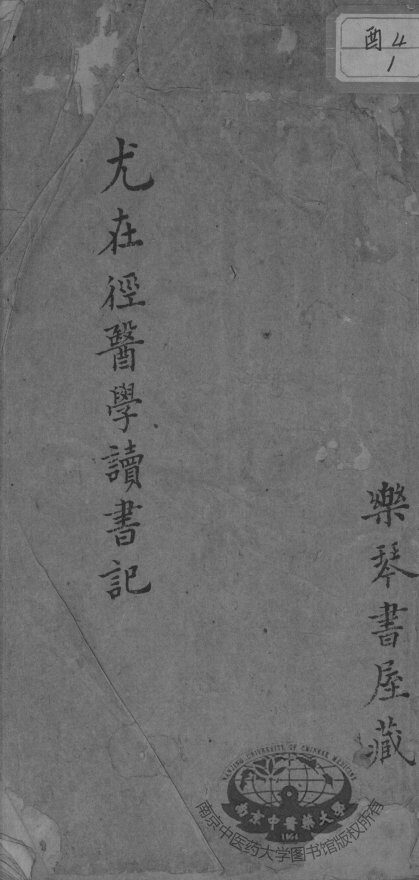 酉4
1
尤在徑醫學讀書記
樂琴書屋藏
NANJING UNIVERSITY OF CHINESE MEDICINE
南京中醫藥大學
1954
南京中医药大学图书馆版权所有